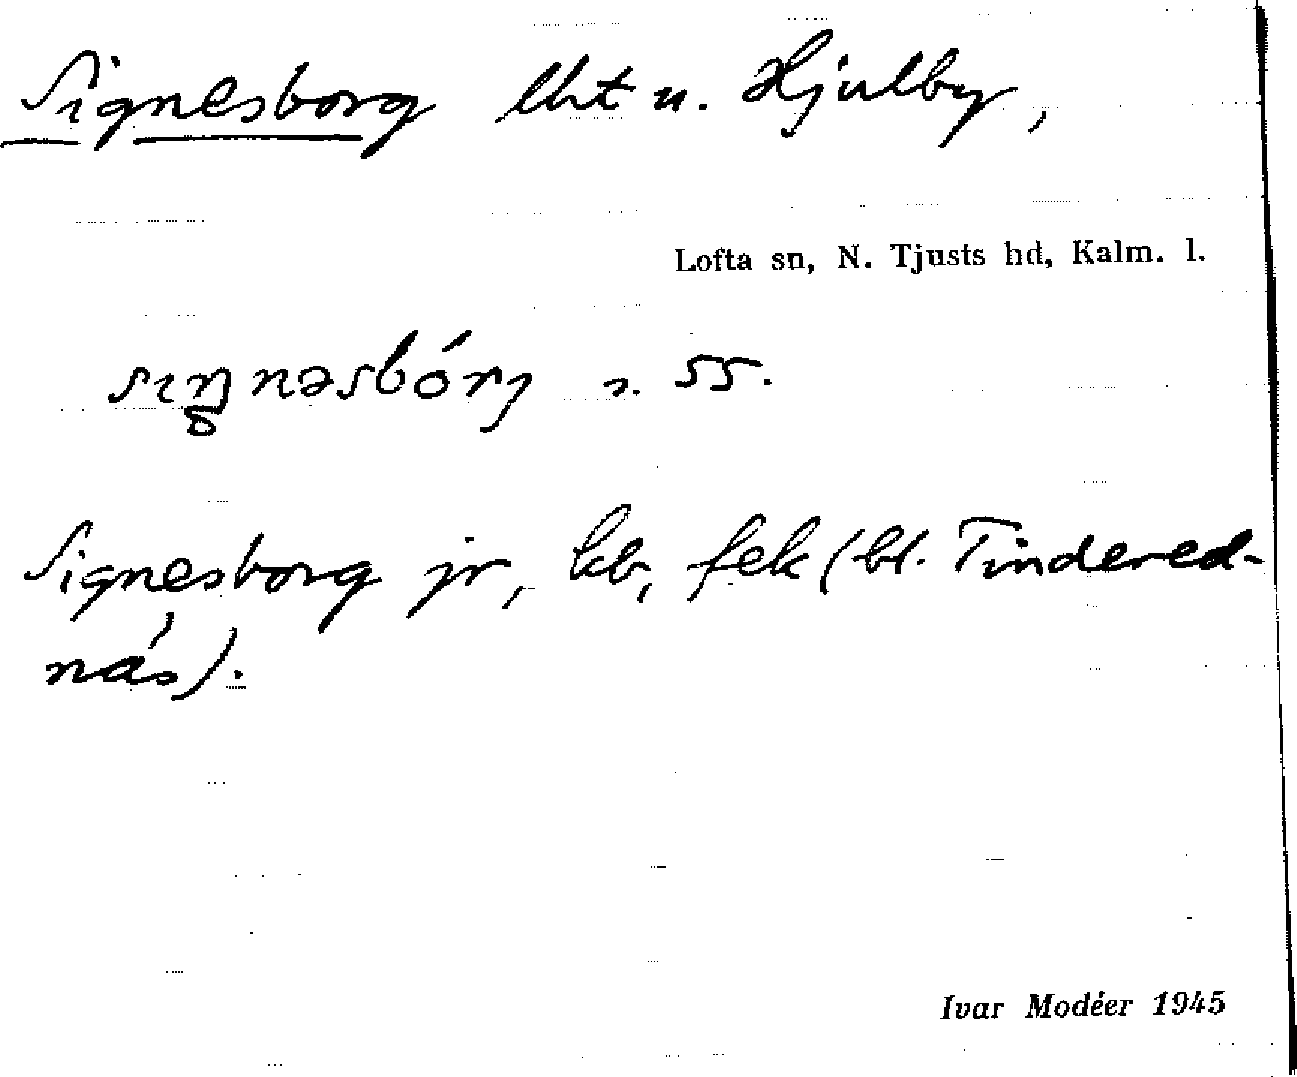 Signesborg lht u. Hjulby,
Lofta sn, N. Tjusts hd, Kalm. l.
sıŋnəsbórj s. 55.
Signesborg jr, kb, fek (bl. Tindered-
näs).
Ivar Modéer 1945